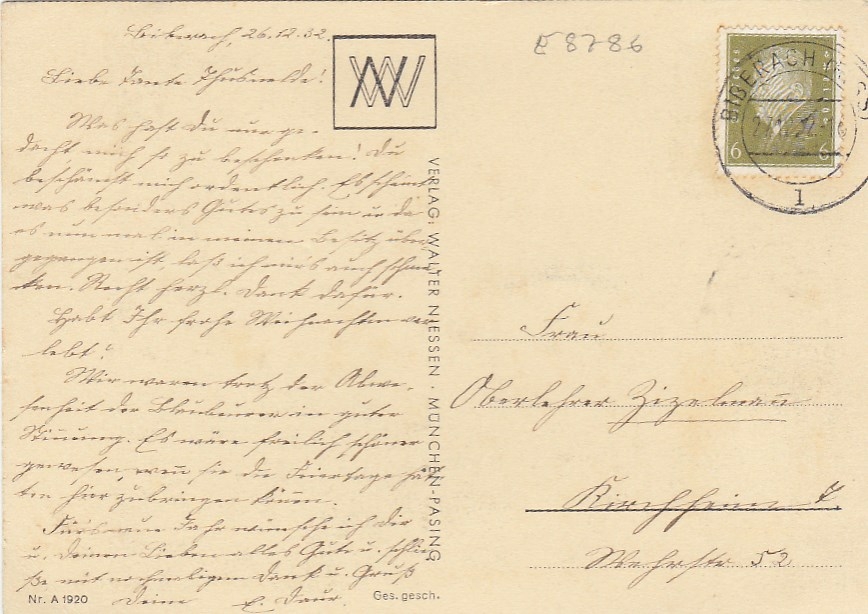 Biberach, 26.12.32.
Liebe Tante Thusnelde!
Was hast Du nur ge-
dacht, mich so zu beschenken! Du
beschämst mich ordentlich. Es scheint
was besonders Gutes zu sein u. da
es nun mal in meinen Besitz über-
gegangen ist, laß ich mir's auch schme-
cken. Recht herzl. Dank dafür.
Habt Ihr frohe Weihnachten ver-
lebt?
Wir waren trotz der Abwe-
senheit der Blaubeurer in guter
Stimmung. Es wäre freilich schöner
gewesen, wenn sie die Feiertage hät-
ten hier zubringen können.
Fürs neue Jahr wünsche ich Dir
u. Deinen Lieben alles Gute u. schlie-
ße mit nochmaligem Dank u. Gruß
Deine E. Daur.
Nr. A 1920
Ges. gesch.
VERLAG: WALTER NIESSEN · MÜNCHEN-PASING
E 8786
BIBERACH
1
6 6
Frau
Oberlehrer Zizelmann
Kirchheim T.
Wehrstr 52